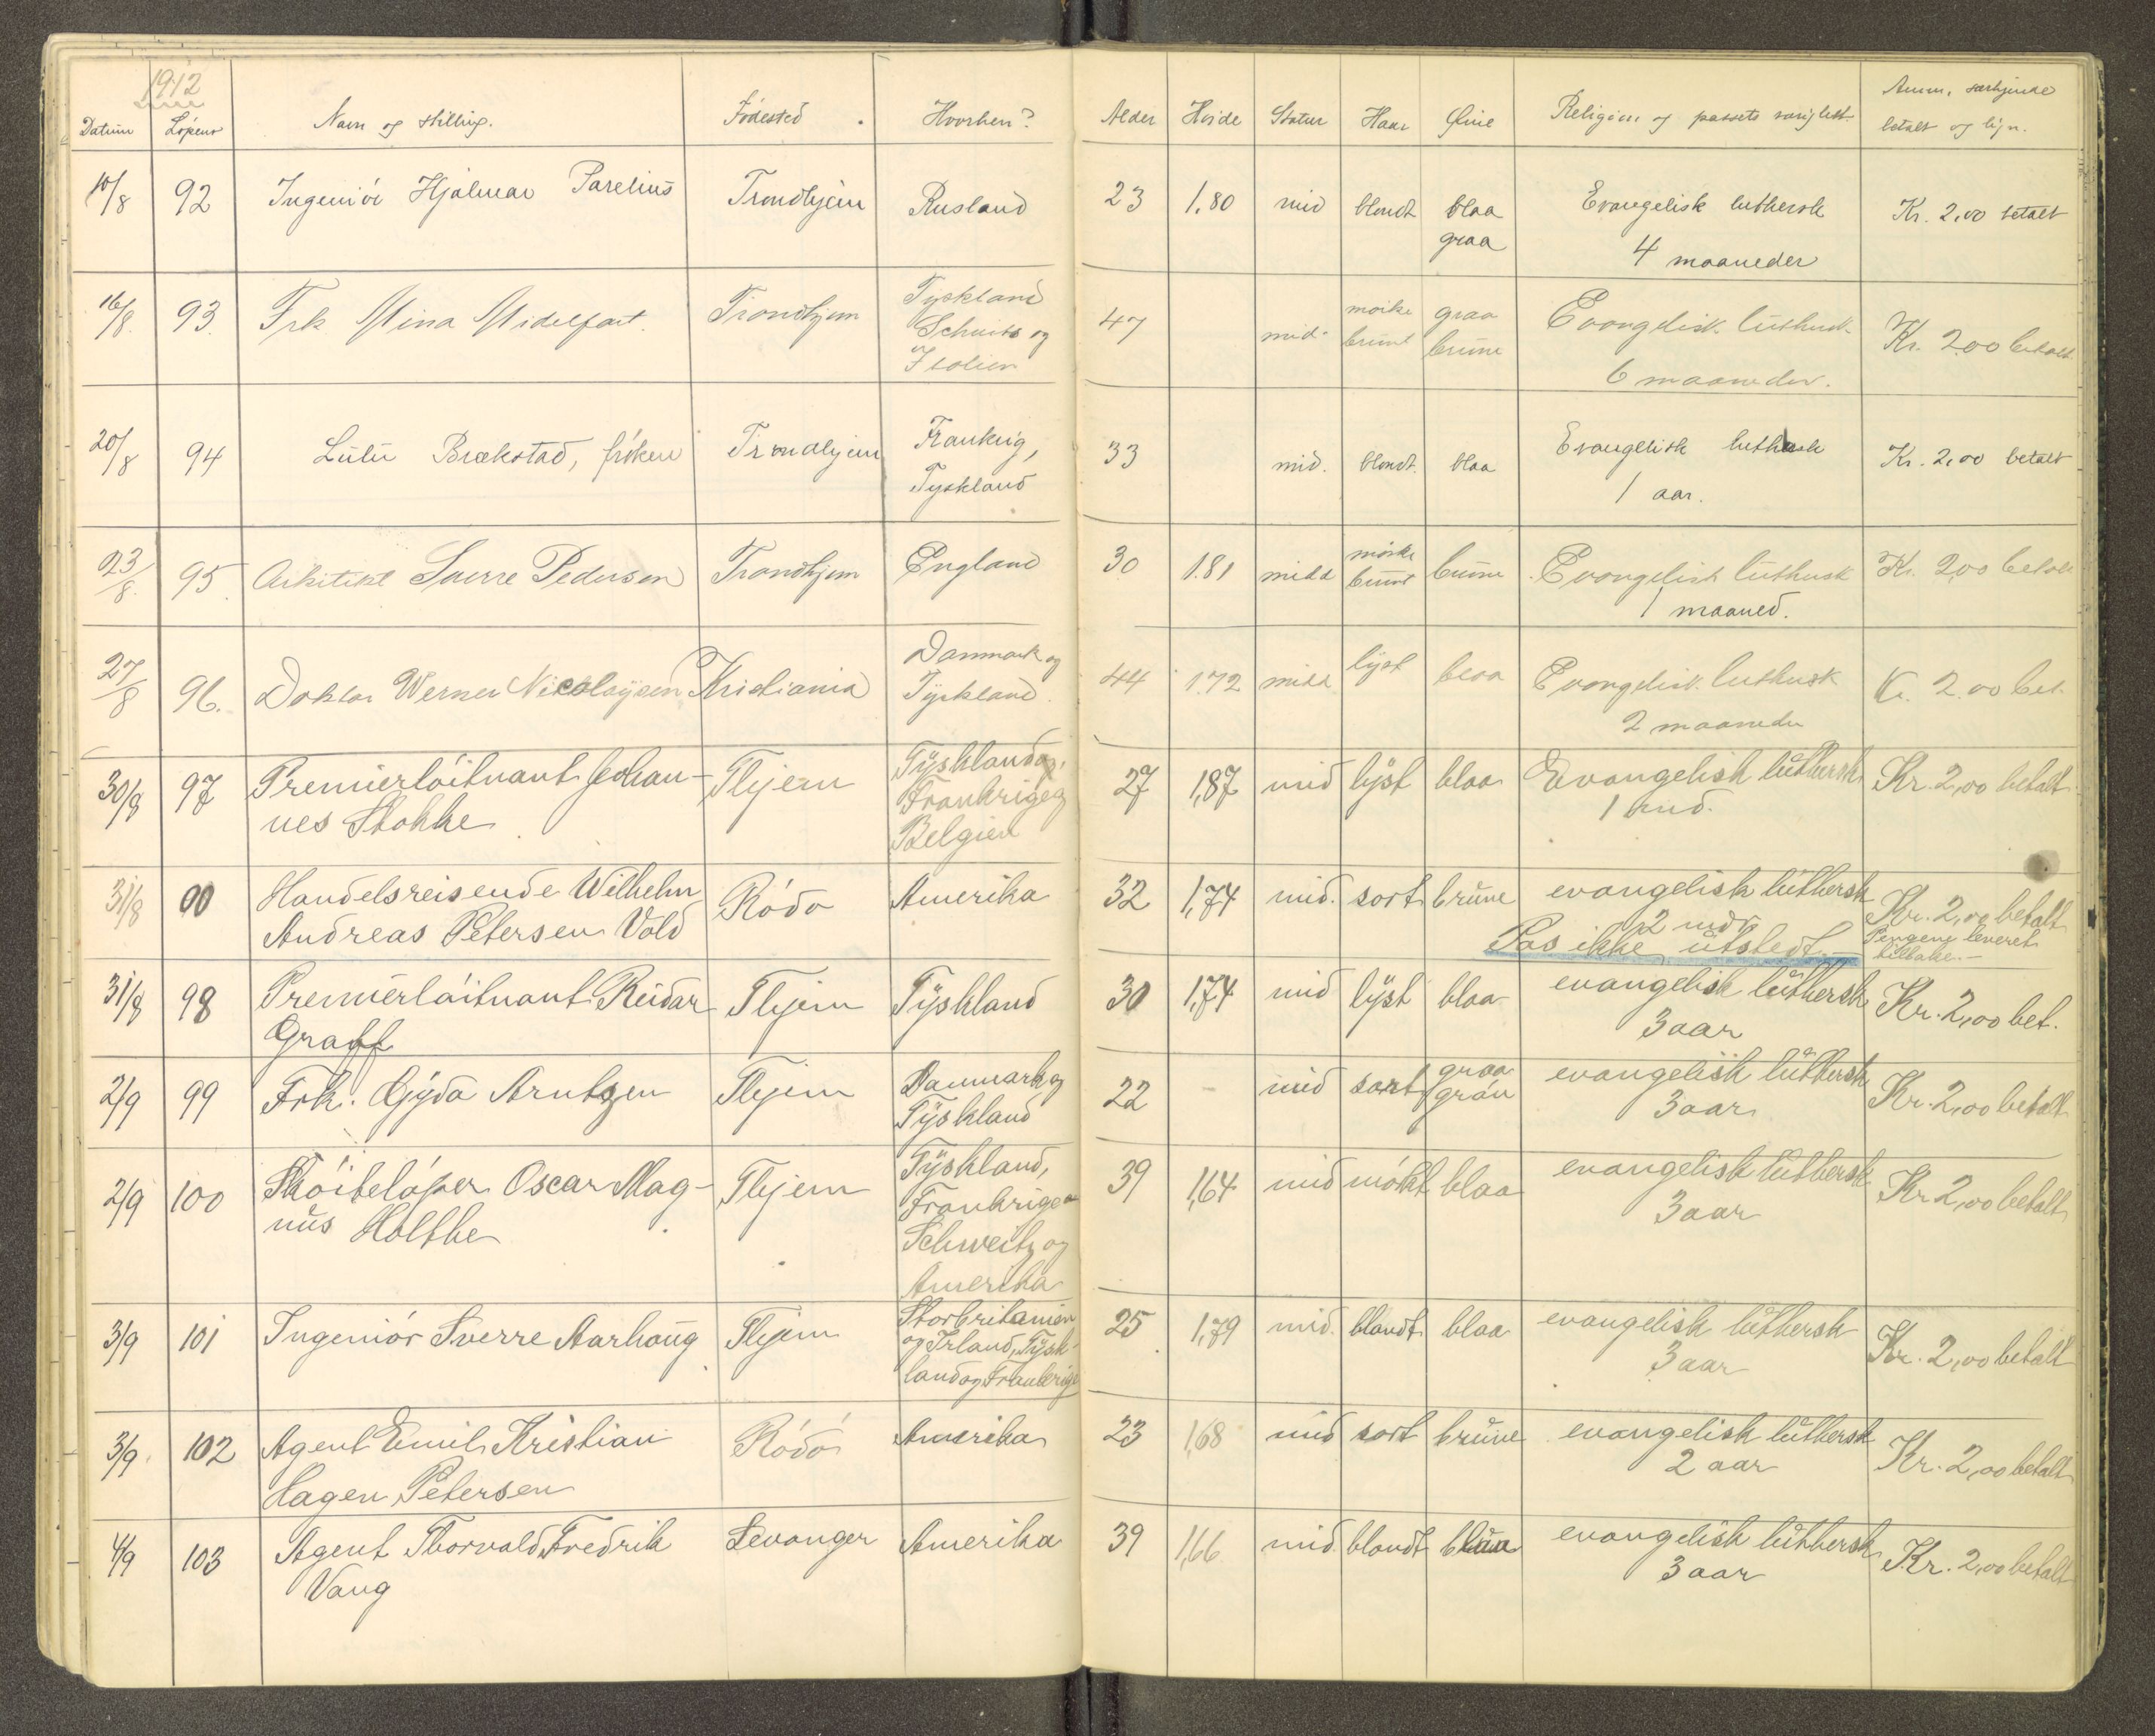 1912
Datum Löpenr Navn og stilling. Födested Hvorhen? Alder Höide Statur Haar Öine Religion og passets varighet Anm. særkjende
betalt og lign.
10/8 92 Ingeniör Hjalmar Parelius Trondhjem Rusland 23 1.80 mid blondt blaa Evangelisk luthersk Kr. 2,00 betalt
graa 4 maaneder
16/8. 93. Frk. Mina Midelfart. Trondhjem Tyskland 47 mid. mörke graa Evangelisk luthersk Kr. 2.00 betalt
Schuits og brunt brune 6 maaneder.
Italien
20/8 94 Lulu Brækstad, fröken Trondhjem Frankrig, 33 mid. blondt. blaa Evangelisk luthersk Kr. 2,00 betalt
Tyskland 1 aar.
23/8. 95. Arkitekt Sverre Pedersen Trondhjem England 30 1.81 midd mörke brune Evangelisk luthersk Kr. 2,00 betalt
brunt 1 maaned.
27/8 96. Doktor Werner Nicolaysen Kristiania Danmark og 44 1.72 midd lyst blaa Evangelisk luthersk Kr. 2.00 bet.
Tyskland. 2 maaneder
30/8 97 Premierlöitnant Johan- Thjem Tyskland og, 27 1,87 mid lyst blaa Evangelisk luthersk Kr. 2,00 betalt.
nes Stokke Frankrig og 1 md.
Belgien
31/8 00 Handelsreisende Wilhelm Rödö Amerika 32 1,74 mid. sort brune evangelisk luthersk Kr. 2,00 betalt
Andreas Petersen Vold 2 mdr Pengene leveret
Pas ikke utstedt. tilbake.-
31/8 98 Premierlöitnant Reidar Thjem Tyskland 30 1,74 mid lyst blaa evangelisk luthersk Kr. 2,00 bet.
Graff 3 aar
2/9 99 Frk. Gyda Arntzen Thjem Danmark og 22 - mid sort graa evangelisk luthersk Kr. 2,00 betalt
Tyskland grön 3 aar
2/9 100 Sköiteløper Oscar Mag- Thjem Tyskland, 39 1,64 mid mökt blaa evangelisk luthersk Kr 2,00 betalt
nus Holthe Frankrig 3 aar
Schweitz og
Amerika
3/9 101 Ingeniör Sverre Aarhaug Thjem Storbritanien 25 1,79 mid. blondt blaa evangelisk luthersk Kr. 2,00 betalt
og Irland, Tysk- 3 aar
land og Frankrige
3/9. 102 Agent Emil Kristian Rödö Amerika 23 1,68 mid sort brune evangelisk luthersk Kr. 2,00 betalt
Hagen Petersen 2 aar
4/9 103 Agent Thorvald Fredrik Levanger Amerika 39 1,66 mid. blondt blaa evangelisk luthersk Kr. 2,00 betalt
Vang 3 aar